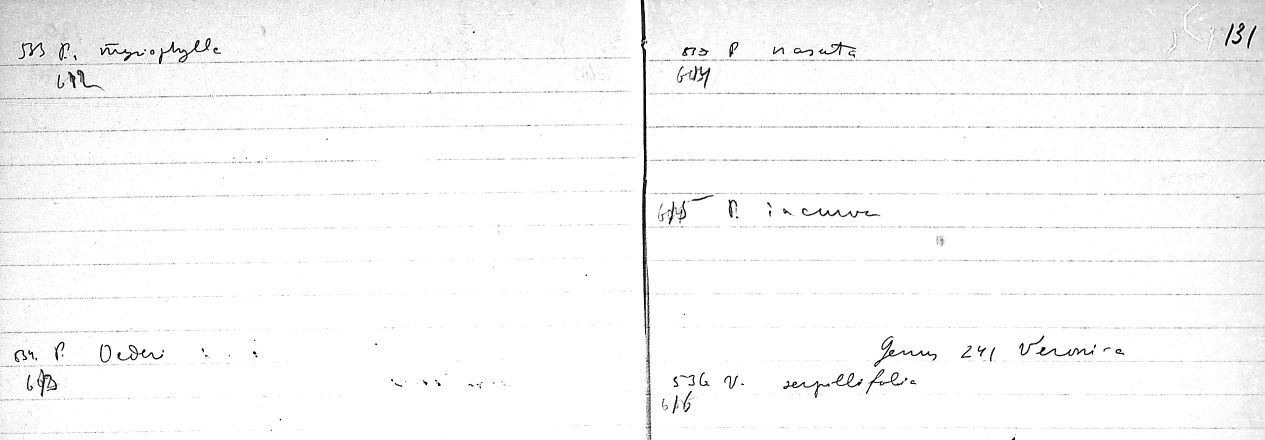 533 P. myriophylla
612
534. P. Oederi
613
131
535 P nasuta
P. incurva
Genus 241 Veronica
536 V. serpyllifolia
616